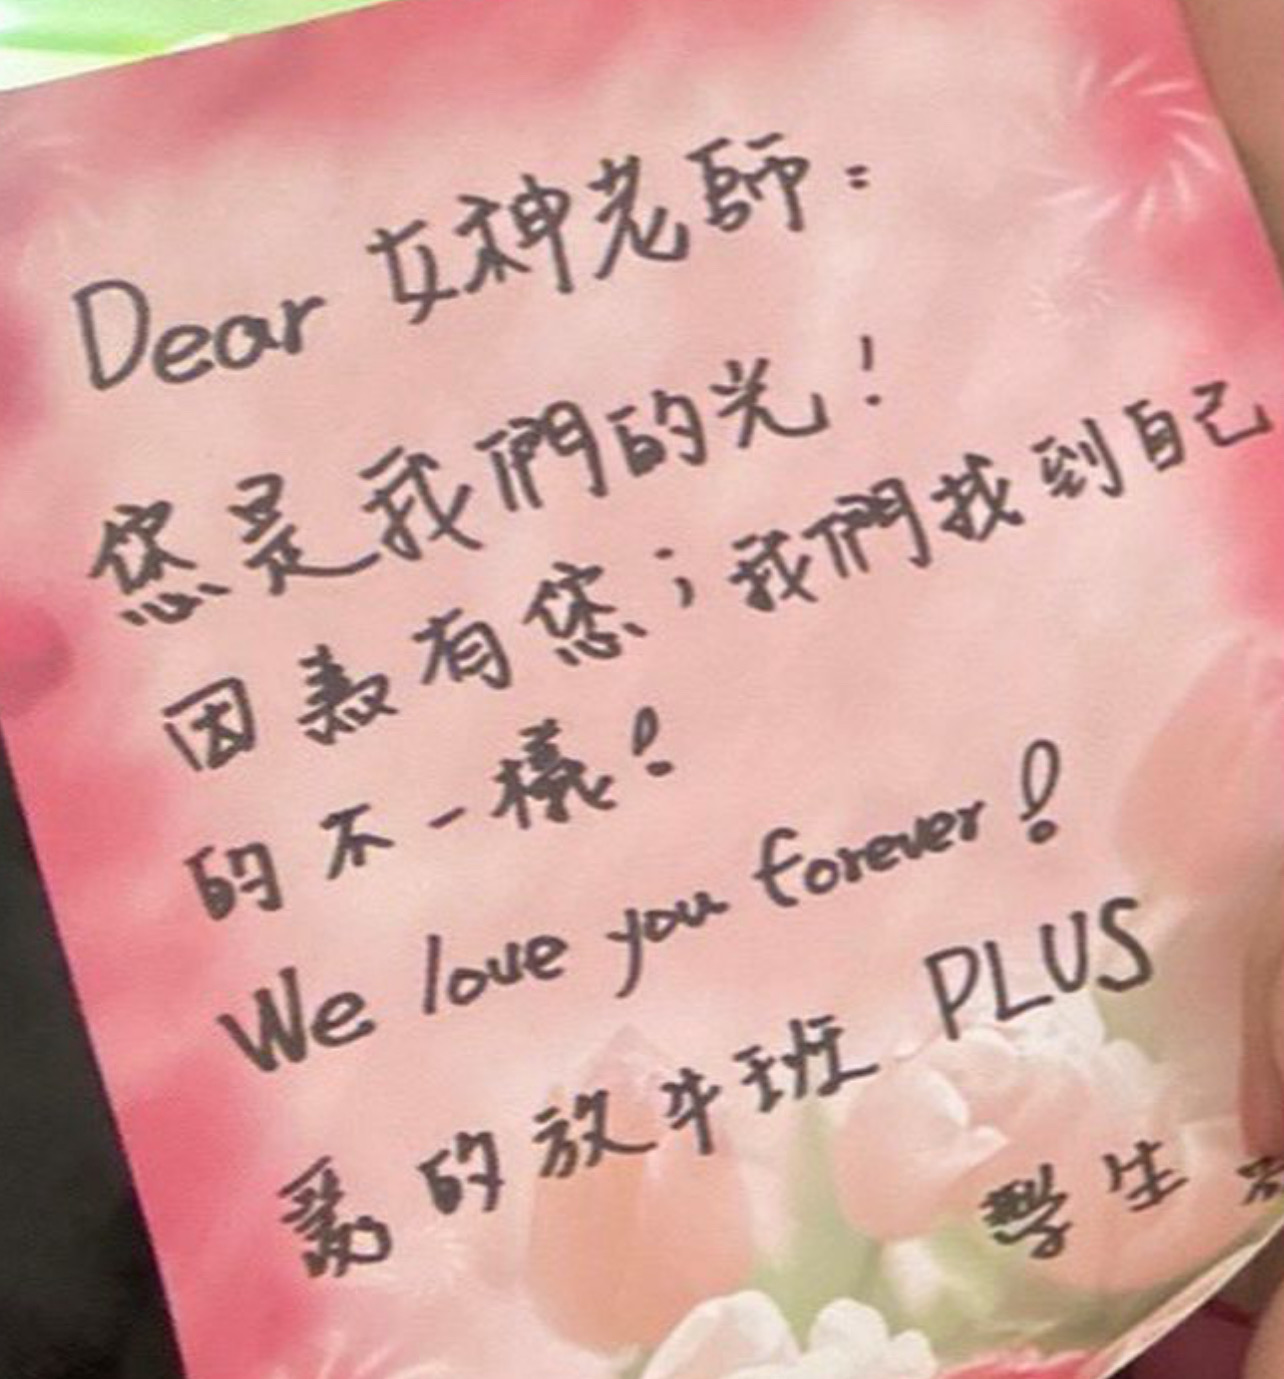 Dear 女神老師：
您是我們的光！
因為有您；我們找到自己
的不一樣！
We love you forever!
愛的放牛班 PLUS
學生